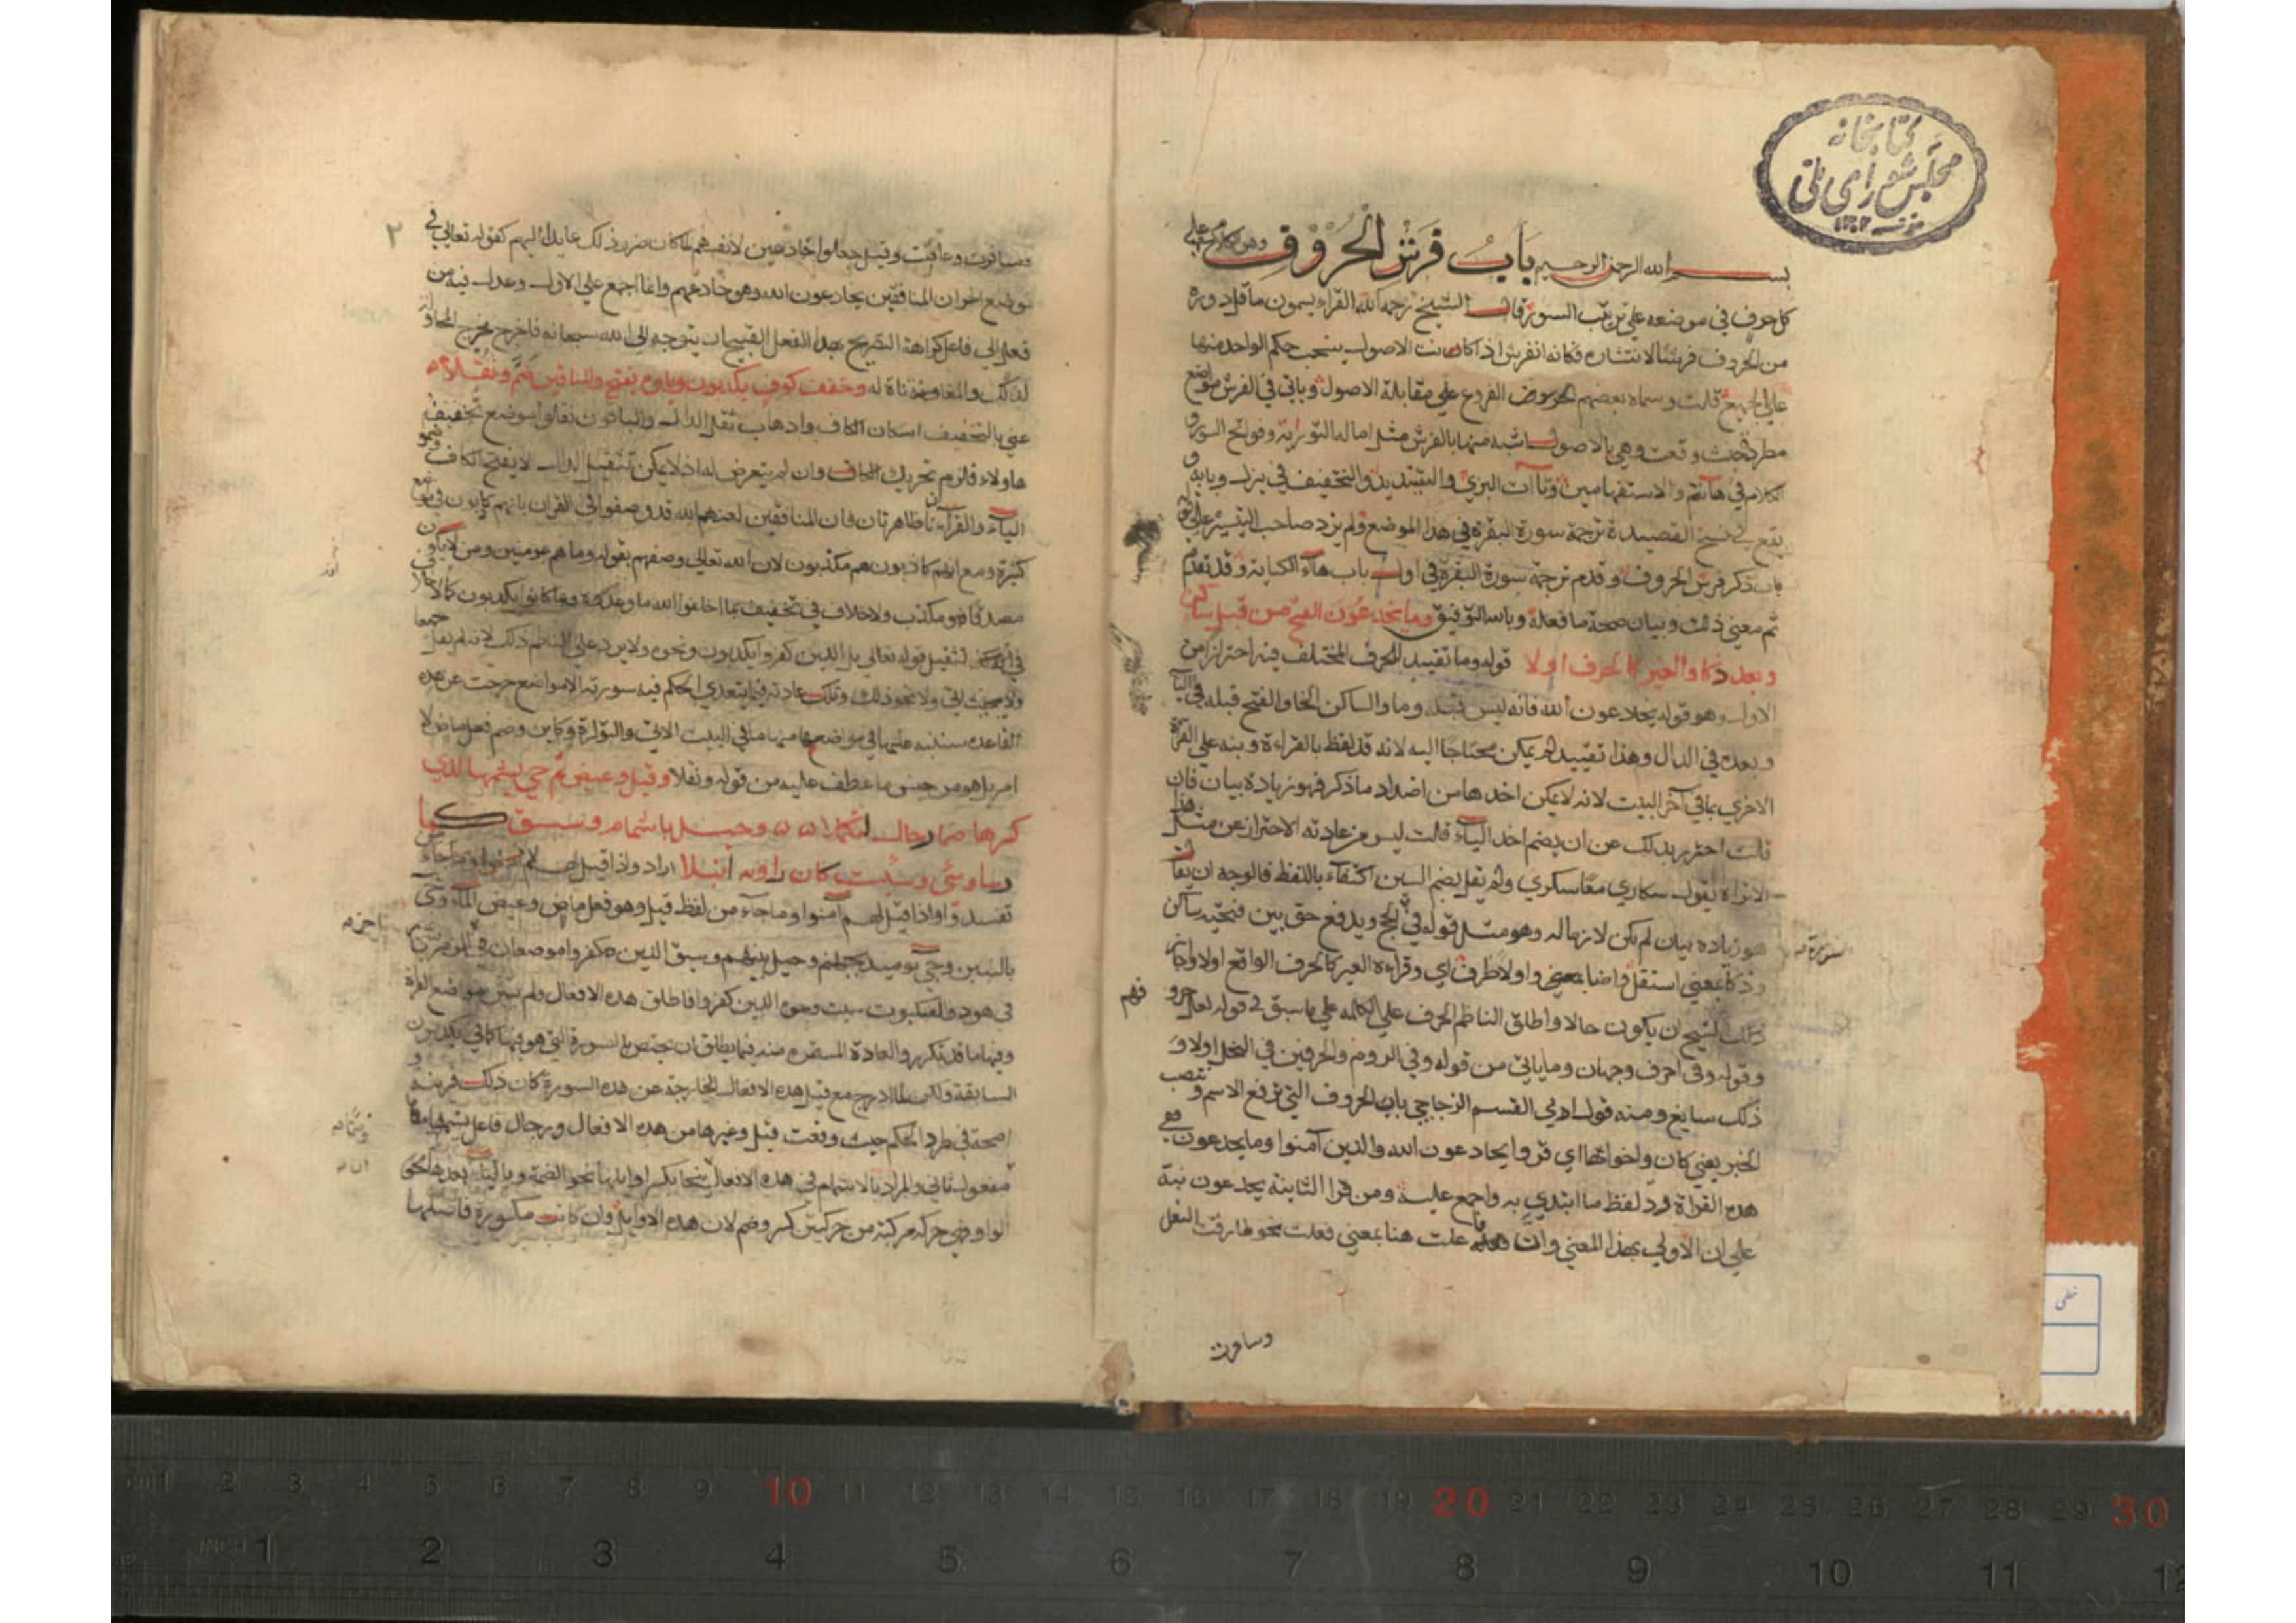 كتابخانه
مجلس شورای ملی
بسم الله الرحمن الرحيم باب فرش الحروف وهو الكلام على
كل حرف في موضعه على ترتيب السور قال الشيخ رحمه الله القراء يسمون ما قل دوره
من الحروف فرشا لانتشاره فكانه انفرش اذ كانت الاصول ينسحب حكم الواحد منها
على الجميع قلت وسماه بعضهم الفروع على مقابلة الاصول وياتي في الفرش مواضع
مطردة حيث وقعت وهي بالاصول اشبه منها بالفرش مثل امالة التورية وفواتح السور و
الكلام في هاأنتم والاستفهامين وتاآت البزي والتشديد والتخفيف في ينزل وبابه و
يقع في نسخ القصيدة ترجمة سورة البقرة في هذا الموضع ولم يزد صاحب التيسير على
باب ذكر فرش الحروف وقدم ترجمة سورة البقرة في اول باب هاء الكناية وقد تقدم
ثم معنى ذلك وبيان صحة ما فعله وبالله التوفيق وما يخدعون الفتح من قبل ساكن
وبعد ذكا والغير كالحرف اولا قوله وما تقييد للحرف المختلف فيه احترازا من
الاول وهو قوله يخادعون الله فانه ليس قبله وما والساكن الخاء والفتح قبله في الياء
وبعده في الدال وهذا تقييد لم يكن محتاجا اليه لانه قد لفظ بالقراءة ونبه على القراءة
الاخرى بما في آخر البيت لانه لا يمكن اخذها من اضداد ما ذكر فهو زيادة بيان فان
قلت احترز بذلك عن ان يضم احد الياء قلت ليس من عادته الاحتراز عن مثل هذا
الا تراه يقول سكارى معا سكرى ولم يقل بضم السين اكتفاء باللفظ فالوجه ان يقال
هو زيادة بيان لم يكن لازما له وهو مثل قوله في الحج ويدفع حق بين فتحيه ساكن
وذكا بمعنى استقل واضا واولا ظرف اي وقراءة الغير كالحرف الواقع اولا واجاز
الشيخ ان يكون حالا واطلق الناظم الحرف على الكلمة على ما سبق في قوله
وقوله وفي احرف وجهان وما ياتي من قوله وفي الروم والحرفين في النحل اولا و
ذلك سايغ ومنه قول ابي القسم الزجاجي باب الحروف التي ترفع الاسم وتنصب
الخبر يعني كان واخواتها اي قروا يخادعون الله والذين آمنوا وما يخدعون ففي
هذه القراة رد لفظ ما ابتدي به واجمع عليه ومن قرا الثانية يخدعون نبه
على ان الاولى بهذا المعنى وان فاعلت هنا بمعنى فعلت نحو طارقت النعل
سورة
فهم
وسافرت
٢
وسافرت وعاقبت وقيل جعلوا خادعين لانفسهم لما كان ضرر ذلك عايدا اليهم كقوله تعالى في
موضع اخر ان المنافقين يخادعون الله وهو خادعهم وانما اجمع على الاول وعدل فيه من
فعل الى فاعل كراهة التصريح بهذا الفعل القبيح ان يتوجه الى الله سبحانه فاخرج مخرج المحاولة
لذلك والمعاوضة له وخفف كوف يكذبون وياوه بفتح وللباقين ضم وثقلا
عنى بالتخفيف اسكان الكاف واذهاب ثقل الذال والباقون ثقلوا موضع تخفيف
هاولاء فلزم تحريك الكاف وان لم يتعرض له اذ لا يمكن تثقيل الذال الا بفتح الكاف
الياء والقراءتان ظاهرتان فان المنافقين لعنهم الله قد وصفوا في القران بانهم كاذبون في مواضع
كثيرة ومع انهم كاذبون هم مكذبون لان الله تعالى وصفهم بقوله وما هم بمومنين ومن لا يكون
مصدقا فهو مكذب ولا خلاف في تخفيف بما اخلفوا الله ما وعدوه وبما كانوا يكذبون كما لا خلاف
في تثقيل قوله تعالى بل الذين كفروا يكذبون ونحوه ولا يرد على الناظم ذلك لانه لم يقل جميعا
ولا بحيث اتى ولا نحو ذلك وتلك عادته فيما يتعدى الحكم فيه سورته الا مواضع خرجت عن هذه
القاعدة سننبه عليها في مواضعها منها ما في البيت الاتي والتوراة وكاين وضم فعل ماض لا
امر بل هو من جنس ما عطف عليه من قوله وثقلا وقيل وغيض ثم جيء يشمها لدى
كسرها ضما رجال لتكملا وحيل باشمام وسيق كما
رسا وسيء وسيئت كان راويه انبلا اراد واذا قيل لهم
تفسدوا واذا قيل لهم آمنوا وما جاء من لفظ قيل وهو فعل ماض وغيض الماء وجيء
بالنبيين وجيء يوميذ بجهنم وحيل بينهم وسيق الذين كفروا موضعان في الزمر
في هود والعنكبوت سيئت وجوه الذين كفروا فاطلق هذه الافعال ولم يبين مواضع القراءة
وفيها ما قد تكرر والعادة المستمرة منه فيما يطلق ان يختص بالسورة التي هو فيها كما في يكذبون
السابقة ولكن لما ادرج مع قيل هذه الافعال الخارجة عن هذه السورة كان ذلك قرينة و
اضحة في طرد الحكم حيث وقعت قيل وغيرها من هذه الافعال ورجال فاعل يشمها
مفعول ثاني والمراد بالاشمام في هذه الافعال ان ينحا بكسر اوايلها نحو الضمة وبالياء بعدها نحو
الواو فهي حركة مركبة من حركتين كسر وضم لان هذه الاوايل وان كانت مكسورة فاصلها
خطی